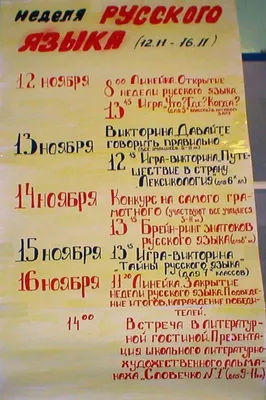 неделя РУССКОГО
ЯЗЫКА (12.11 - 16.11)
12 ноября 8 00 Линейка. Открытие
недели русского языка.
13 15 Игра „Что? Где? Когда?"
13 ноября Викторина „Давайте
говорить правильно"
12 15 Игра-викторина „Путе-
шествие в страну
Лексикология" (для 6х кл)
14 ноября Конкурс на самого гра-
мотного (участвуют все учащиеся
13 15 Брейн-ринг знатоков
15 ноября русского языка
13 15 Игра-викторина
"Тайны русского языка"
(для 7х классов)
16 ноября 11 20 Линейка. Закрытие
недели русского языка. Подведе-
ние итогов, награждение победи-
телей.
14 00 Встреча в литератур-
ной гостиной. Презента-
ция школьного литературно-
художественного альма-
наха „Словечко" N1 (для 9-11 кл)